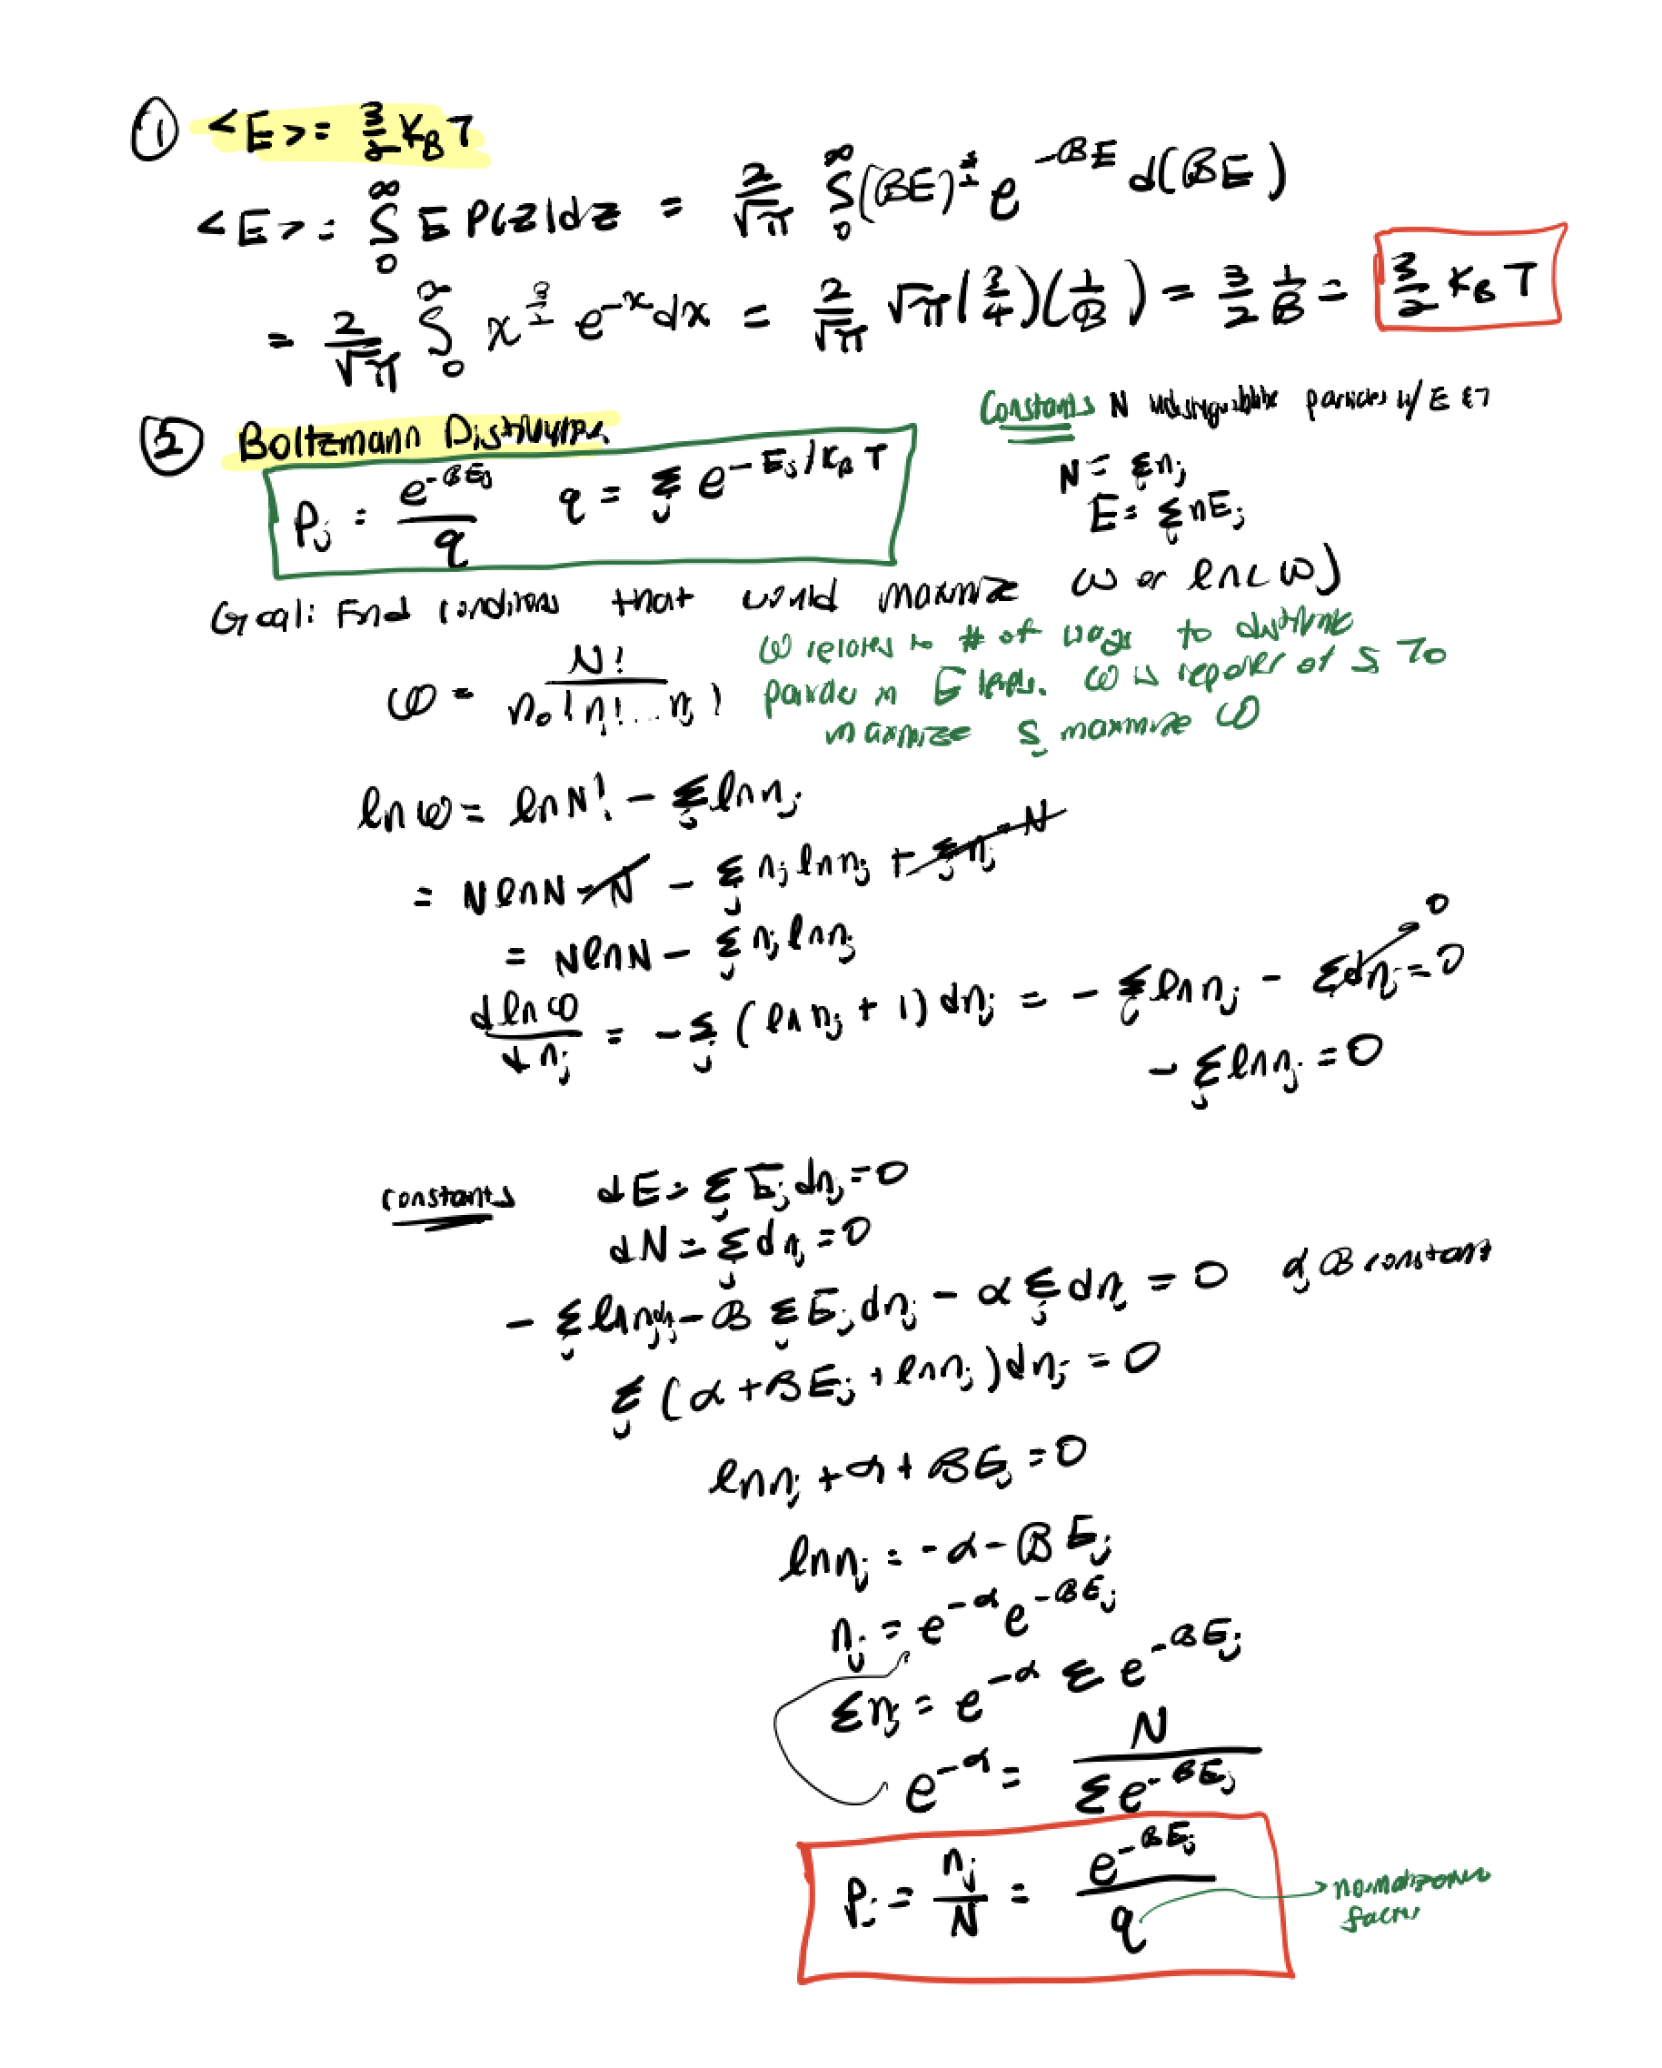 ① <E> = 3/2 K_B T
<E> = ∫_0^∞ E P(z)dz = 2/√π ∫_0^∞ (βE)^{3/2} e^{-βE} d(βE)
= 2/√π ∫_0^∞ x^{3/2} e^{-x} dx = 2/√π √π (3/4)(1/β) = 3/2 1/β = 3/2 K_B T
② Boltzmann Distribution
Constants N indistinguishable particles w/ E &
P_j = e^{-βE_j}/q q = Σ_j e^{-E_j/K_B T}
N = Σn_j
E = ΣnE_j
Goal: Find conditions that would maximize ω or ln(ω)
ω = N!/n_0!n_1!...n_j!
ω relates to # of ways to distribute
particles in E levels. ω is of S To
maximize S, maximize ω
ln ω = ln N! - Σ_j ln n_j
= N ln N - N - Σ_j n_j ln n_j + Σ_j n_j → N
= N ln N - Σ_j n_j ln n_j
d ln ω/d n_j = -Σ_j (ln n_j + 1) dn_j = - Σ_j ln n_j - Σdn_j → 0 = 0
- Σ_j ln n_j = 0
constants dE = Σ_j E_j dn_j = 0
dN = Σ_j dn_j = 0
- Σ_j ln n_j dn_j - β Σ_j E_j dn_j - α Σ_j dn_j = 0 α, β constant
Σ_j (α + βE_j + ln n_j) dn_j = 0
ln n_j + α + βE_j = 0
ln n_j = -α - βE_j
n_j = e^{-α} e^{-βE_j}
Σn_j = e^{-α} Σ e^{-βE_j}
e^{-α} = N/Σe^{-βE_j}
P_j = n_j/N = e^{-βE_j}/q
normalization
factor